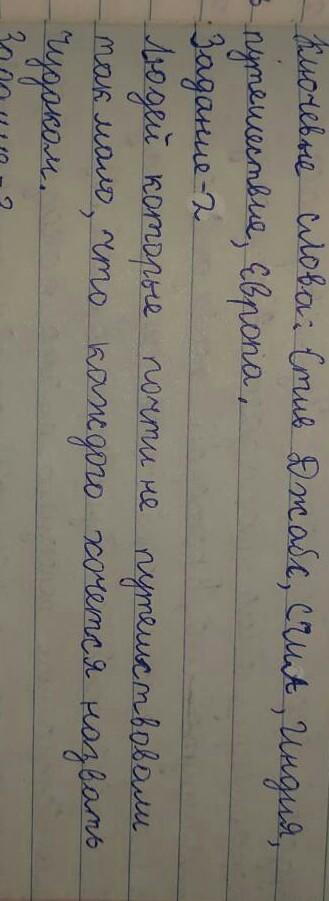 Ключевые слова: Стив Джабс, США, Индия,
путешествие, Европа,
Задание-2
Людей которые почти не путешствовали
так мало, что каждого хочется назвать
чудаком.